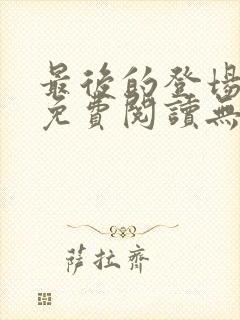 最後的登場
免費閱讀無
薩拉齊